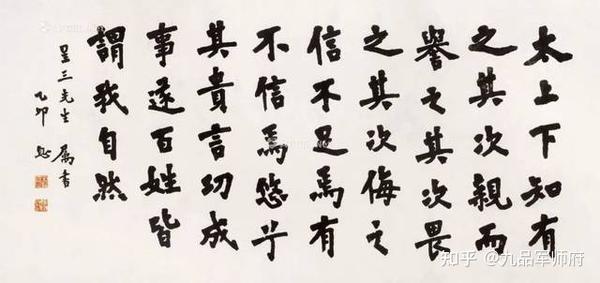 太上下知有
之其次親而
譽之其次畏
之其次侮之
信不足焉有
不信焉悠兮
其貴言功成
事遂百姓皆
謂我自然
星三先生 屬書
乙卯
知乎 @九品军师府